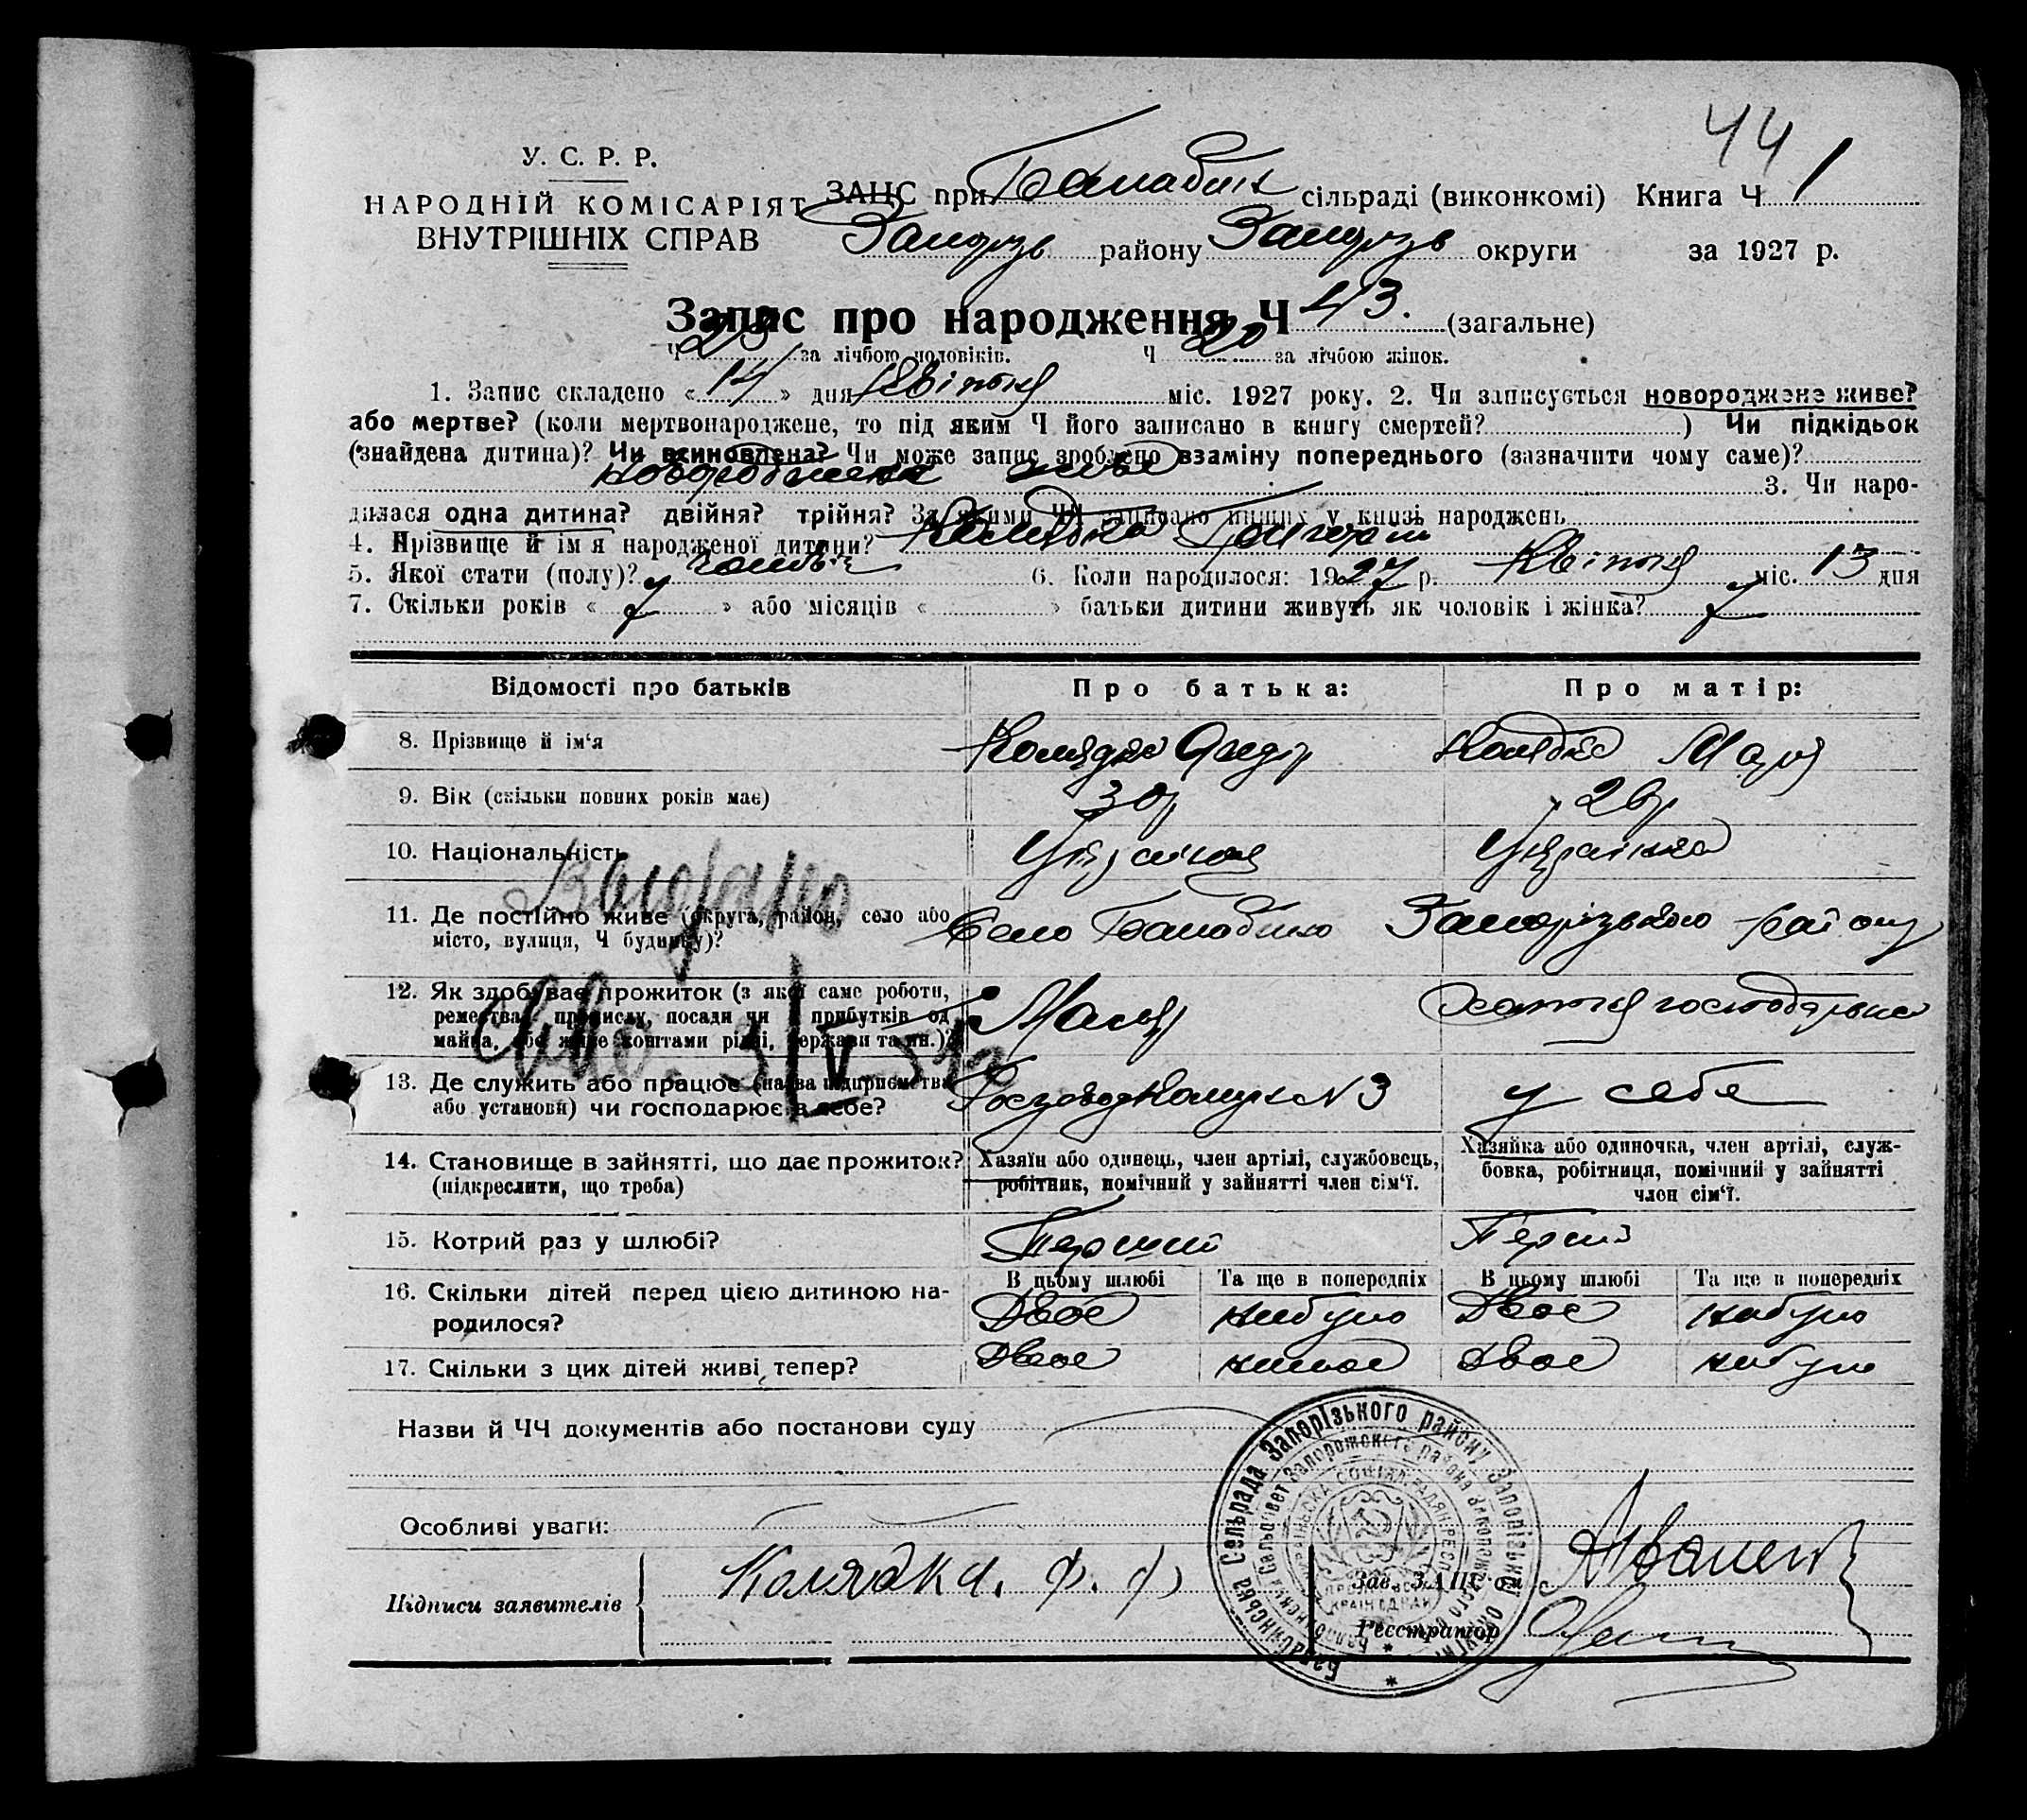 44
У. С. Р. Р.
НАРОДНІЙ КОМІСАРІЯТ
ВНУТРІШНІХ СПРАВ
ЗАЦС при Балабин сільраді (виконкомі) Книга Ч 1
Запоріз району Запоріз округи за 1927 р.
Запис про народження Ч 43. (загальне)
Ч 23 за лічбою чоловіків. Ч 20 за лічбою жінок.
1. Запис складено « 14 » дня Квітня міс. 1927 року. 2. Чи записується новороджене живе?
або мертве? (коли мертвонароджене, то під яким Ч його записано в книгу смертей? ) Чи підкідьок
(знайдена дитина)? Чи всиновлена? Чи може запис зроблено взаміну попереднього (зазначити чому саме)?
новороджена живе 3. Чи наро-
дилася одна дитина? двійня? трійня? За якими ЧЧ записано инших у книзі народжень
4. Прізвище й ім'я народженої дитини? Колядка Григорій
5. Якої стати (полу)? чолов 6. Коли народилося: 1927 р. Квітня міс. 13 дня
7. Скільки років « 7 » або місяців « » батьки дитини живуть як чоловік і жінка? 7
Відомості про батьків Про батька: Про матір:
8. Прізвище й ім'я Колядка Федір Колядка Марія
9. Вік (скільки повних років має) 30р 26р
10. Національність Українец Українка
11. Де постійно живе (округа, район, село або Село Балабино Запорізького району
місто, вулиця, Ч будинку)?
12. Як здобуває прожиток (з якої саме роботи, Маляр Хатня господарька
ремества, промислу, посади чи прибутків од
майна, або живе коштами рідні, держави та ин.)?
13. Де служить або працює (назва підприємства у себе
або установи) чи господарює в себе? N 3
Выдано
3/V
14. Становище в зайнятті, що дає прожиток? Хазяїн або одинець, член артілі, службовець, Хазяйка або одиночка, член артілі, служ-
(підкреслити, що треба) робітник, помічний у зайнятті член сім'ї. бовка, робітниця, помічний у зайнятті
член сім'ї.
15. Котрий раз у шлюбі? Перший Перший
16. Скільки дітей перед цією дитиною на- В цьому шлюбі Та ще в попередніх В цьому шлюбі Та ще в попередніх
родилося? Двоє небуло Двоє небуло
17. Скільки з цих дітей живі тепер? Двоє Двоє небуло
Назви й ЧЧ документів або постанови суду
Особливі уваги:
Підписи заявителів Колядка. Ф. Ф
Зав. ЗАЦС'ом
Реєстратор
Балабинська Сельрада Запорізького району Запорізької округи